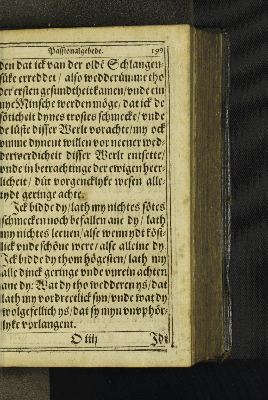 Passionalgebede. 199
den dat ick van der oldē Schlangen
süke erreddet / also wedderümme tho
der ersten gesundtheit kamen / vnde ein
nye Minsche werden möge / dat ick de
söticheit dynes trostes schmecke / vnde
de lüste disser Werlt vorachte / my ock
vmme dynent willen vor neener wed-
derwerdicheit disser Werlt entsette /
vnde in betrachtinge der ewigen heer-
licheit / düt vorgencklyke wesen alle-
tydt geringe achte.
Ick bidde dy / lath my nichtes sötes
schmecken noch befallen ane dy / lath
my nichtes leeuen / alse wenn ydt köst-
lick vnde schöne were / alse alleine dy.
Ick bidde dy thom högesten / lath my
alle dinck geringe vnde vnrein achten
ane dy: Wat dy tho wedderen ys / dat
lath my vordreetlick syn / vnde wat dy
wolgefellich ys / dat sy myn vnuphör-
lyke vorlangent.
O iiij